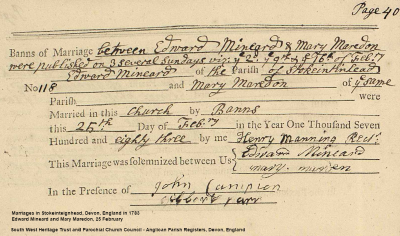 Page 40
Banns of Marriage between Edward Mineard & Mary Maredon
were published on 3 several Sundays viz. y 2d y 9th & 16th of Feb:y
Edward Mineard of the Parish of Stokeinteinhead
No 118 and Mary Maredon of y same
Parish were
Married in this Church by Banns
this 25th Day of Feb:y in the Year One Thousand Seven
Hundred and eighty three by me Henry Manning Rect:r
This Marriage was solemnized between Us Edward Mineard
mary
In the Presence of John Campion
Marriages in Stokeinteignhead, Devon, England in 1783
Edward Mineard and Mary Maredon, 25 February
South West Heritage Trust and Parochial Church Council - Anglican Parish Registers, Devon, England